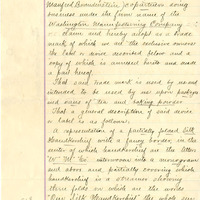 Manfred Brandenstein, copartners doing
business under the firm name of the
Washington Manufacturing Company
claim and hereby adopt as a trade
mark of which we are the exclusive owners
the label as above described below and a
copy of which is annexed hereto and made
a part hereof.
That said trade mark is used by us and
intended to be used by us upon packages
and cans of tea and baking powder
That a general description of said device
or label is as follows:
A representation of a partially folded silk
Handkerchief with a fancy border, in the
center of which handkerchief are the letters
"W M Co" interwoven into a monogram
and above and partially covering which
handkerchief is a
three folds on which are the words
"Our Silk Handkerchief" the whole